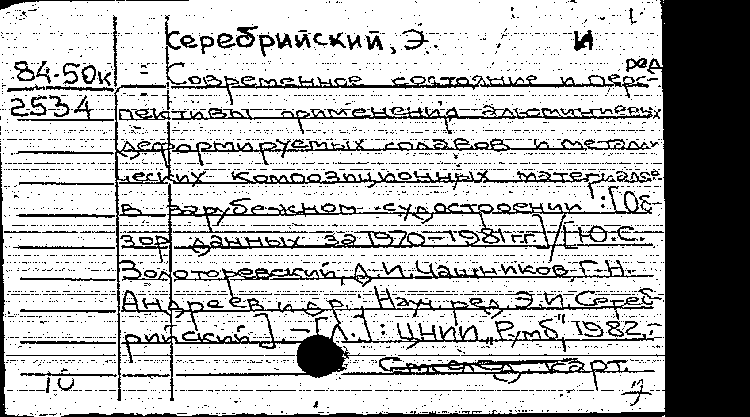 Серебрийский, Э. И
ред
84-50к = Современное состояние и перс-
2534 пективы применения алюминиевых
деформируемых сплавов и металли-
ческих композиционных материалов
в зарубежном судостроении : [Об-
зор данных за 1970-1981 гг.] / [Ю.С.
Золоторевский, Д.И. Чашников, Г.Н.
Андреев и др.; Науч. ред. Э.И. Сереб-
рийский]. – [Л.] : ЦНИИ „Румб“, 1982.-
См. след. карт.
10